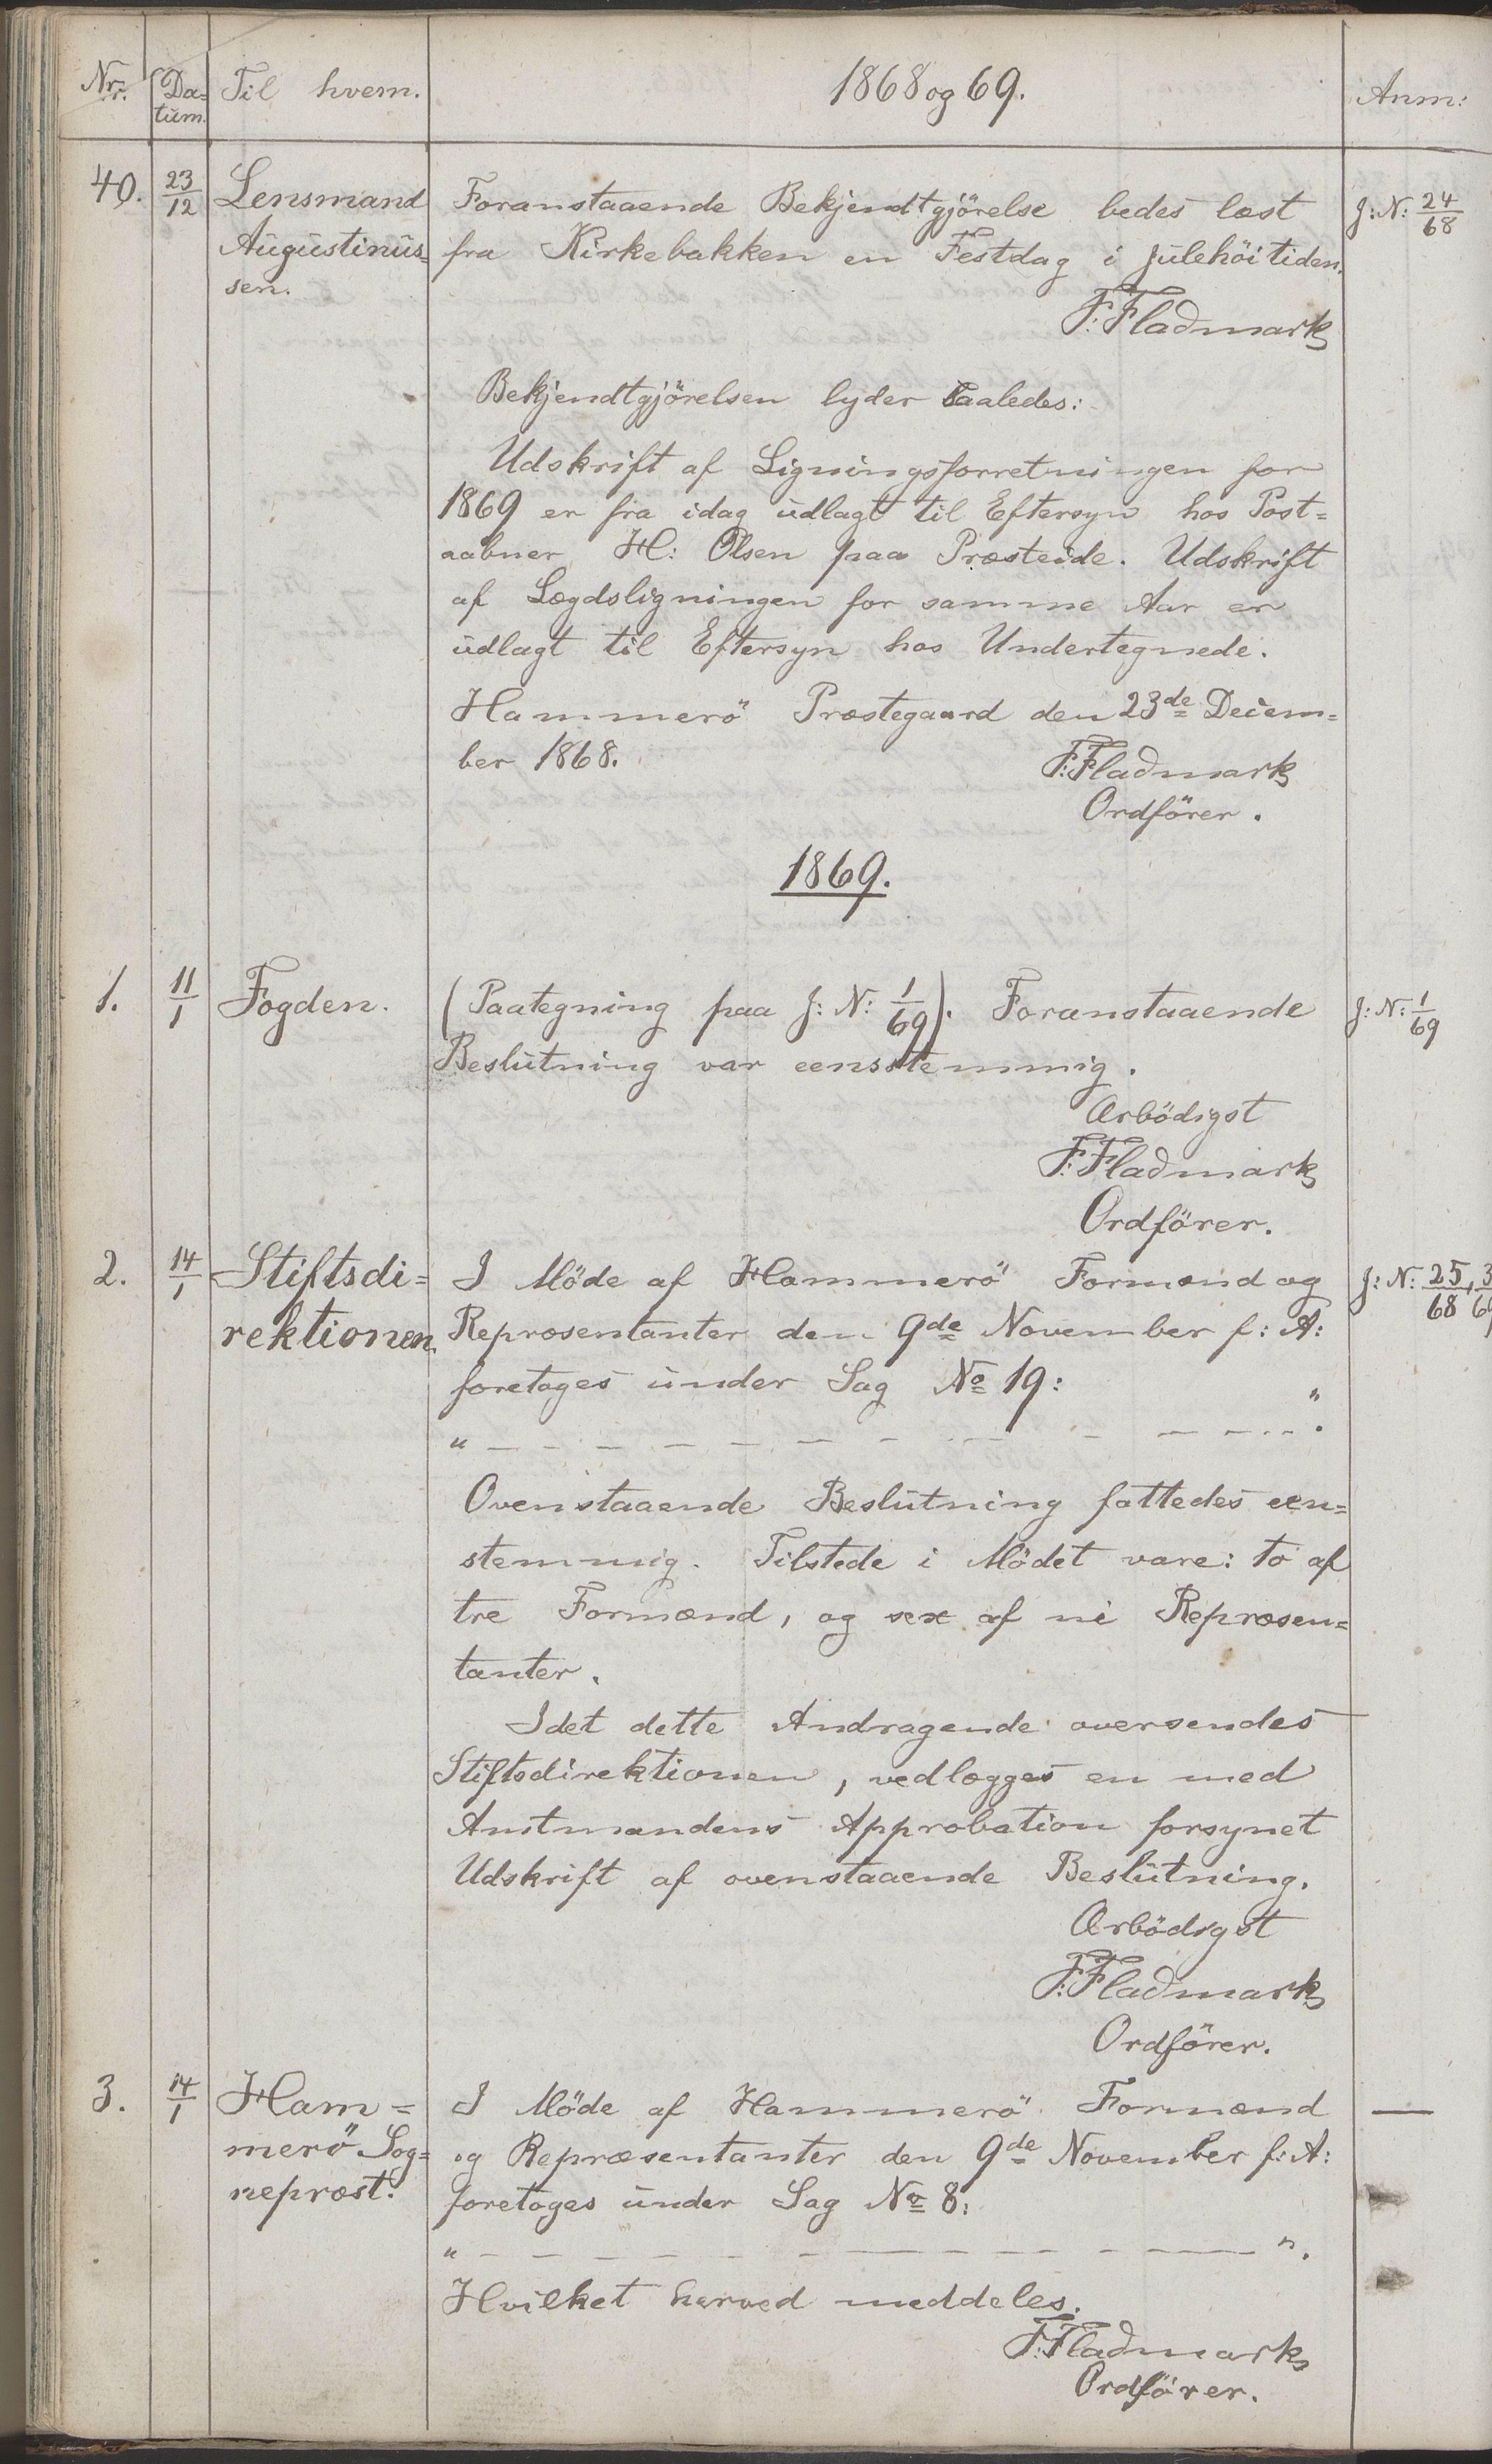 Nr. Da= Til hvem. 1868 og 69. Anm:
tum.
40. 23/12 Lensmand Foranstaaende Bekjendtgjörelse bedes læst J: N: 24/68
Augustinus= fra Kirkebakken en Festdag i Julehöitiden.
sen.
F: Fladmark
Bekjendtgjörelsen lyder saaledes:
Udskrift af Ligningsforretningen for
1869 er fra idag udlagt til Eftersyn hos Post=
aabner H: Olsen paa Præsteide. Udskrift
af Lægdsligningen for samme Aar er
udlagt til Eftersyn hos Undertegnede.
Hammerö Præstegaard den 23de Decem=
ber 1868.
F: Fladmark
Ordförer.
1869.
1. 11/1 Fogden. (Paategning paa J: N: 1/69). Foranstaaende J: N: 1/69
Beslutning var eensstemmig.
Ærbödigst
F: Fladmark
Ordförer.
2. 14/1 Stiftsdi= I Möde af Hammerö Formænd og J: N: 25/68, 3/69
rektionen. Repræsentanter den 9de November f: A:
foretoges under Sag No 19:
" — — — — — — — — — — ".
Ovenstaaende Beslutning fattedes een=
stemmig. Tilstede i Mödet vare: to af
tre Formænd, og sex af ni Repræsen=
tanter.
Idet dette Andragende oversendes
Stiftsdirektionen, vedlægges en med
Amtmandens Approbation forsynet
Udskrift af ovenstaaende Beslutning.
Ærbödigst
F: Fladmark
Ordförer.
3. 14/1 Ham= I Möde af Hammerö Formænd —
merö Sog= og Repræsentanter den 9de November f: A:
nepræst. foretoges under Sag No 8:
" — — — — — — — — — — ".
Hvilket herved meddeles.
F: Fladmark
Ordförer.